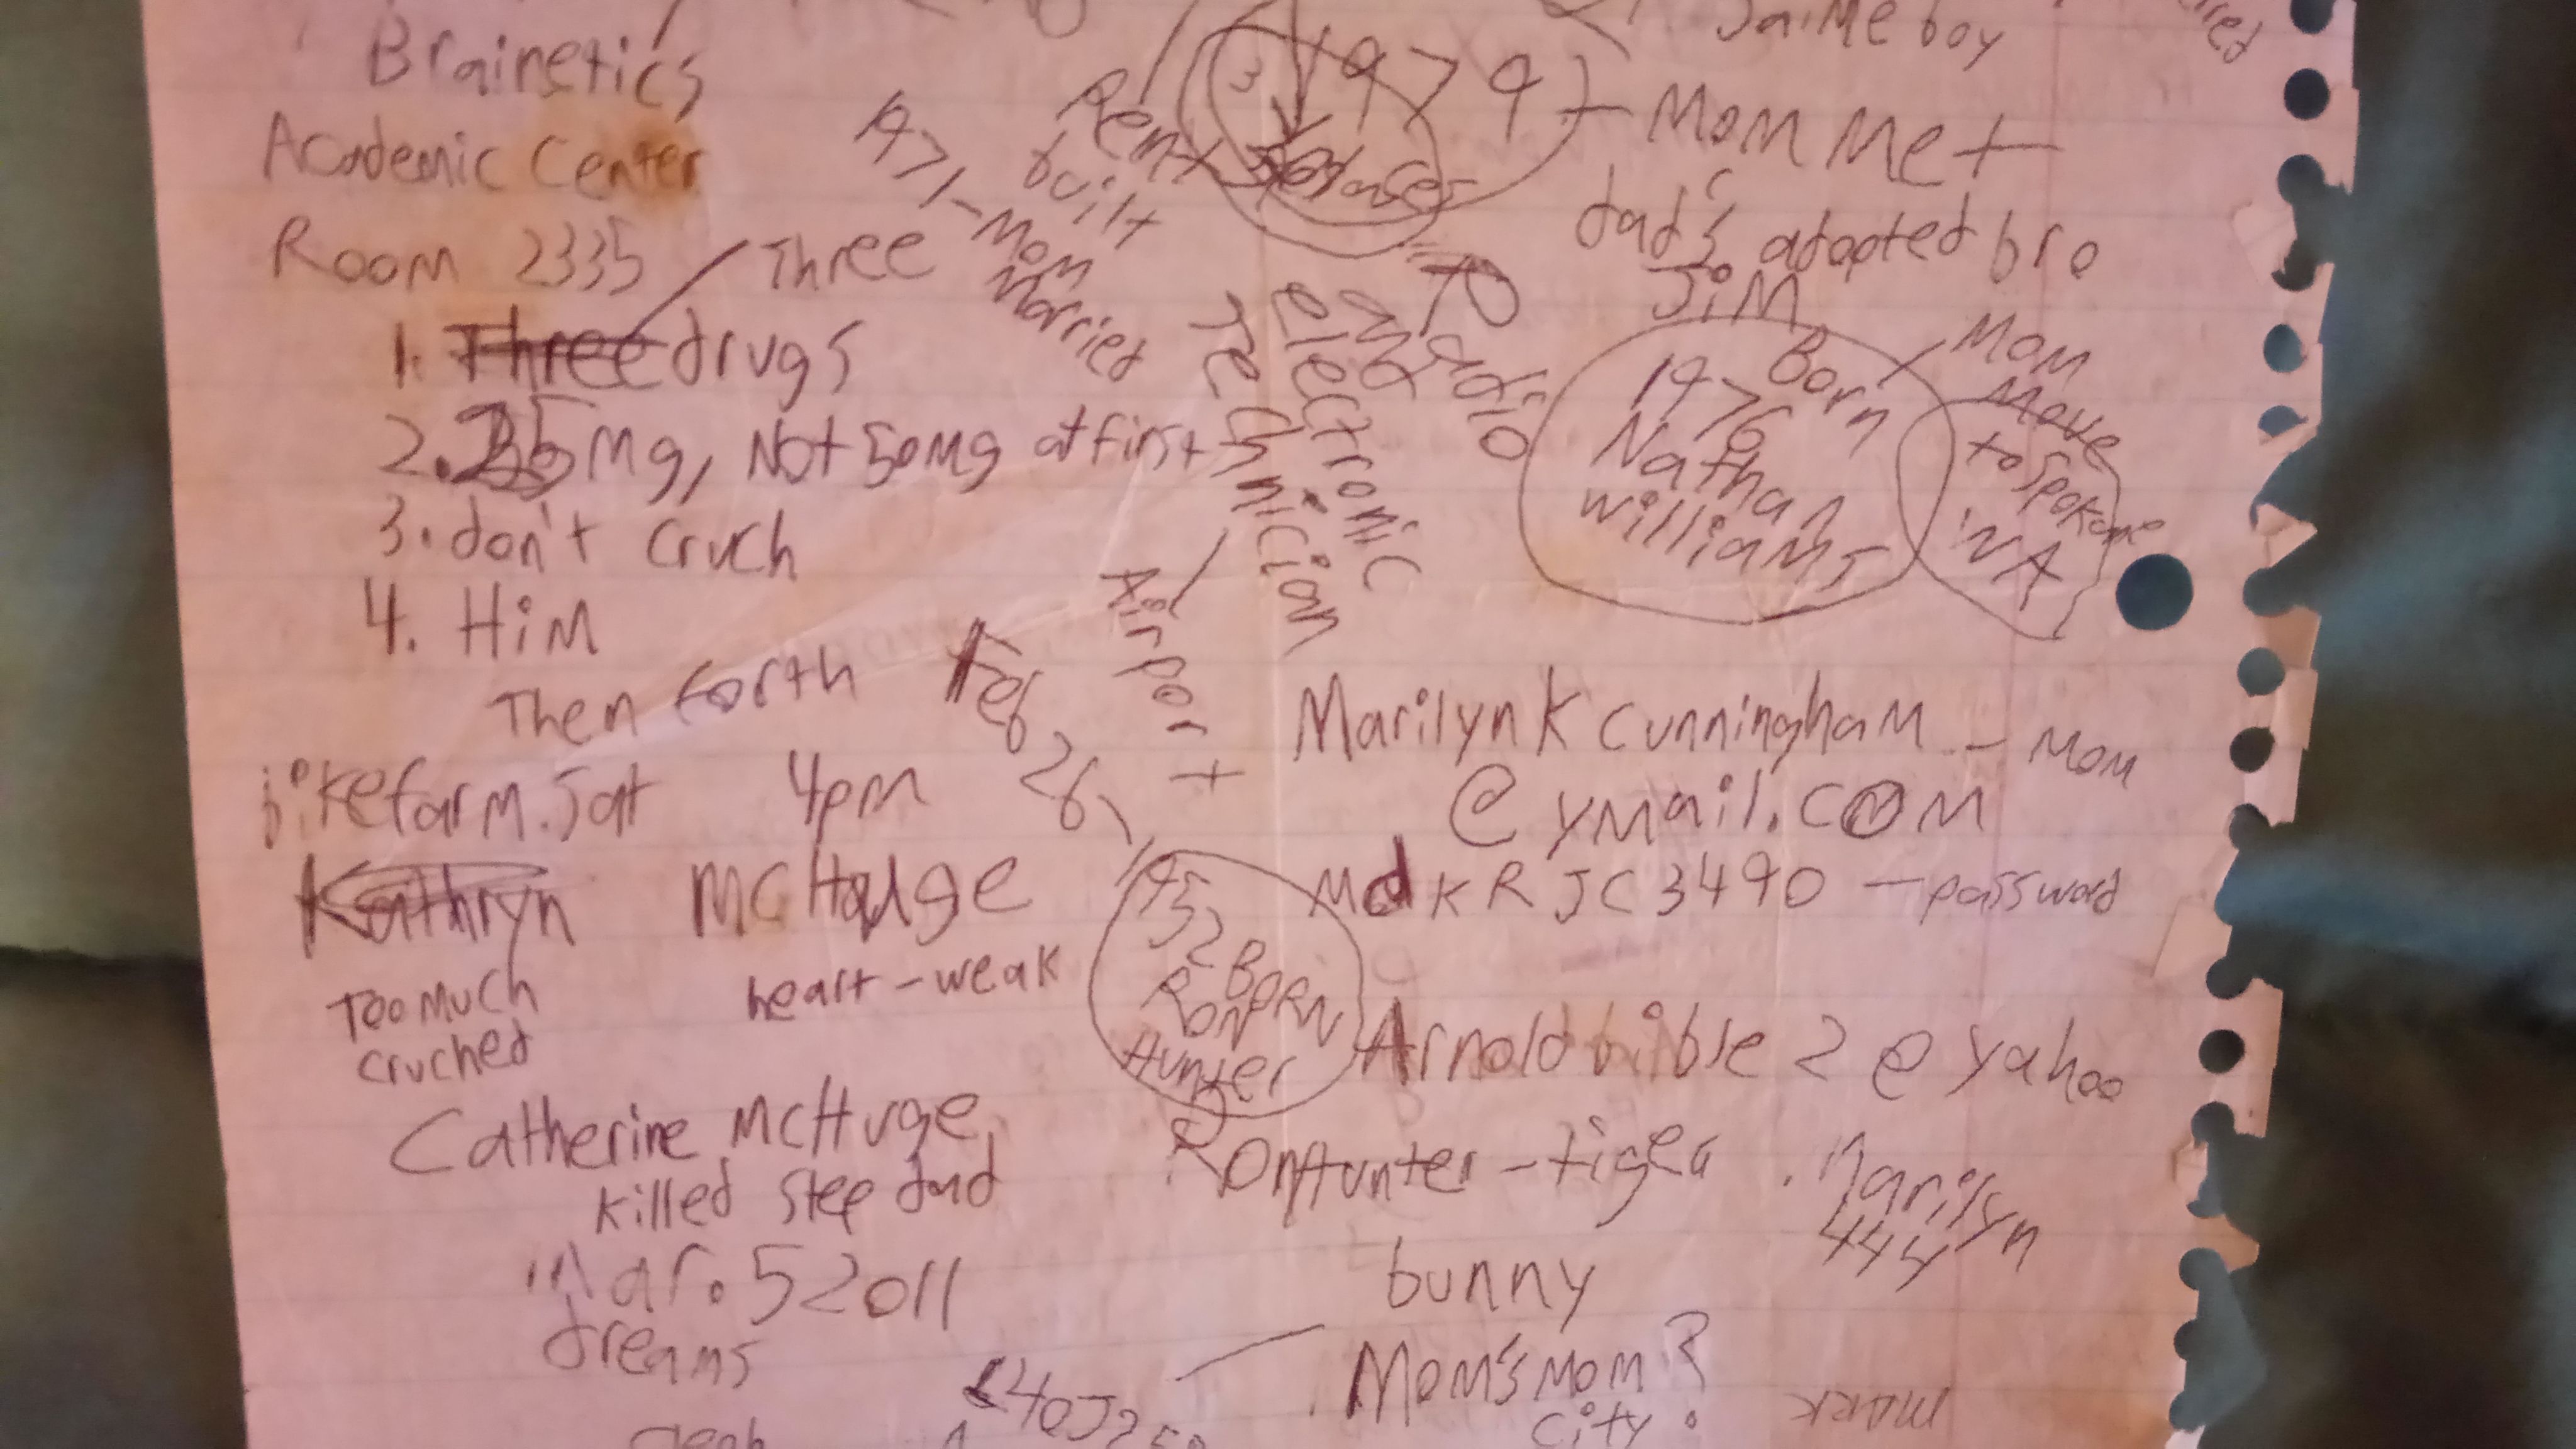 Brainetics
Academic Center
Room 2335
Three
1. Three drugs
2. mg, Not 50mg at first
3. don't cruch
4. HiM
Then forth
bikefarm. Sat 4pm
Kathryn McHauge
Too Much
cruched
heart - weak
Catherine McHuge
killed step dad
Mar. 5 2011
dreams
1971 - Mom
Married
Rent
built
3
1979 - Mom Met
dad's adopted bro
JiM
Jaime boy
Radio
and
electronic
Technician
Airport
Feb 26,
1952 Born
Ron
Hunter
Born
1976
Nathan
Williams
Mom
Move
to Spokane
WA
Marilyn K Cunningham - Mom
@ymail.com
MdKRJC3490 - password
Arnold bible 2 @ yahoo
RonHunter - tiger
. Marilyn
444
bunny
Mom's mom?
city?